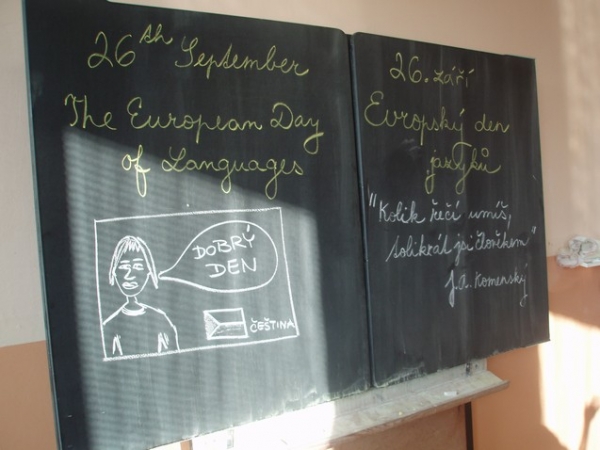 26th September
The European Day
of Languages
DOBRÝ
DEN
ČEŠTINA
26. září
Evropský den
jazyků
"Kolik řečí umíš,
tolikrát jsi člověkem"
J.A. Komenský